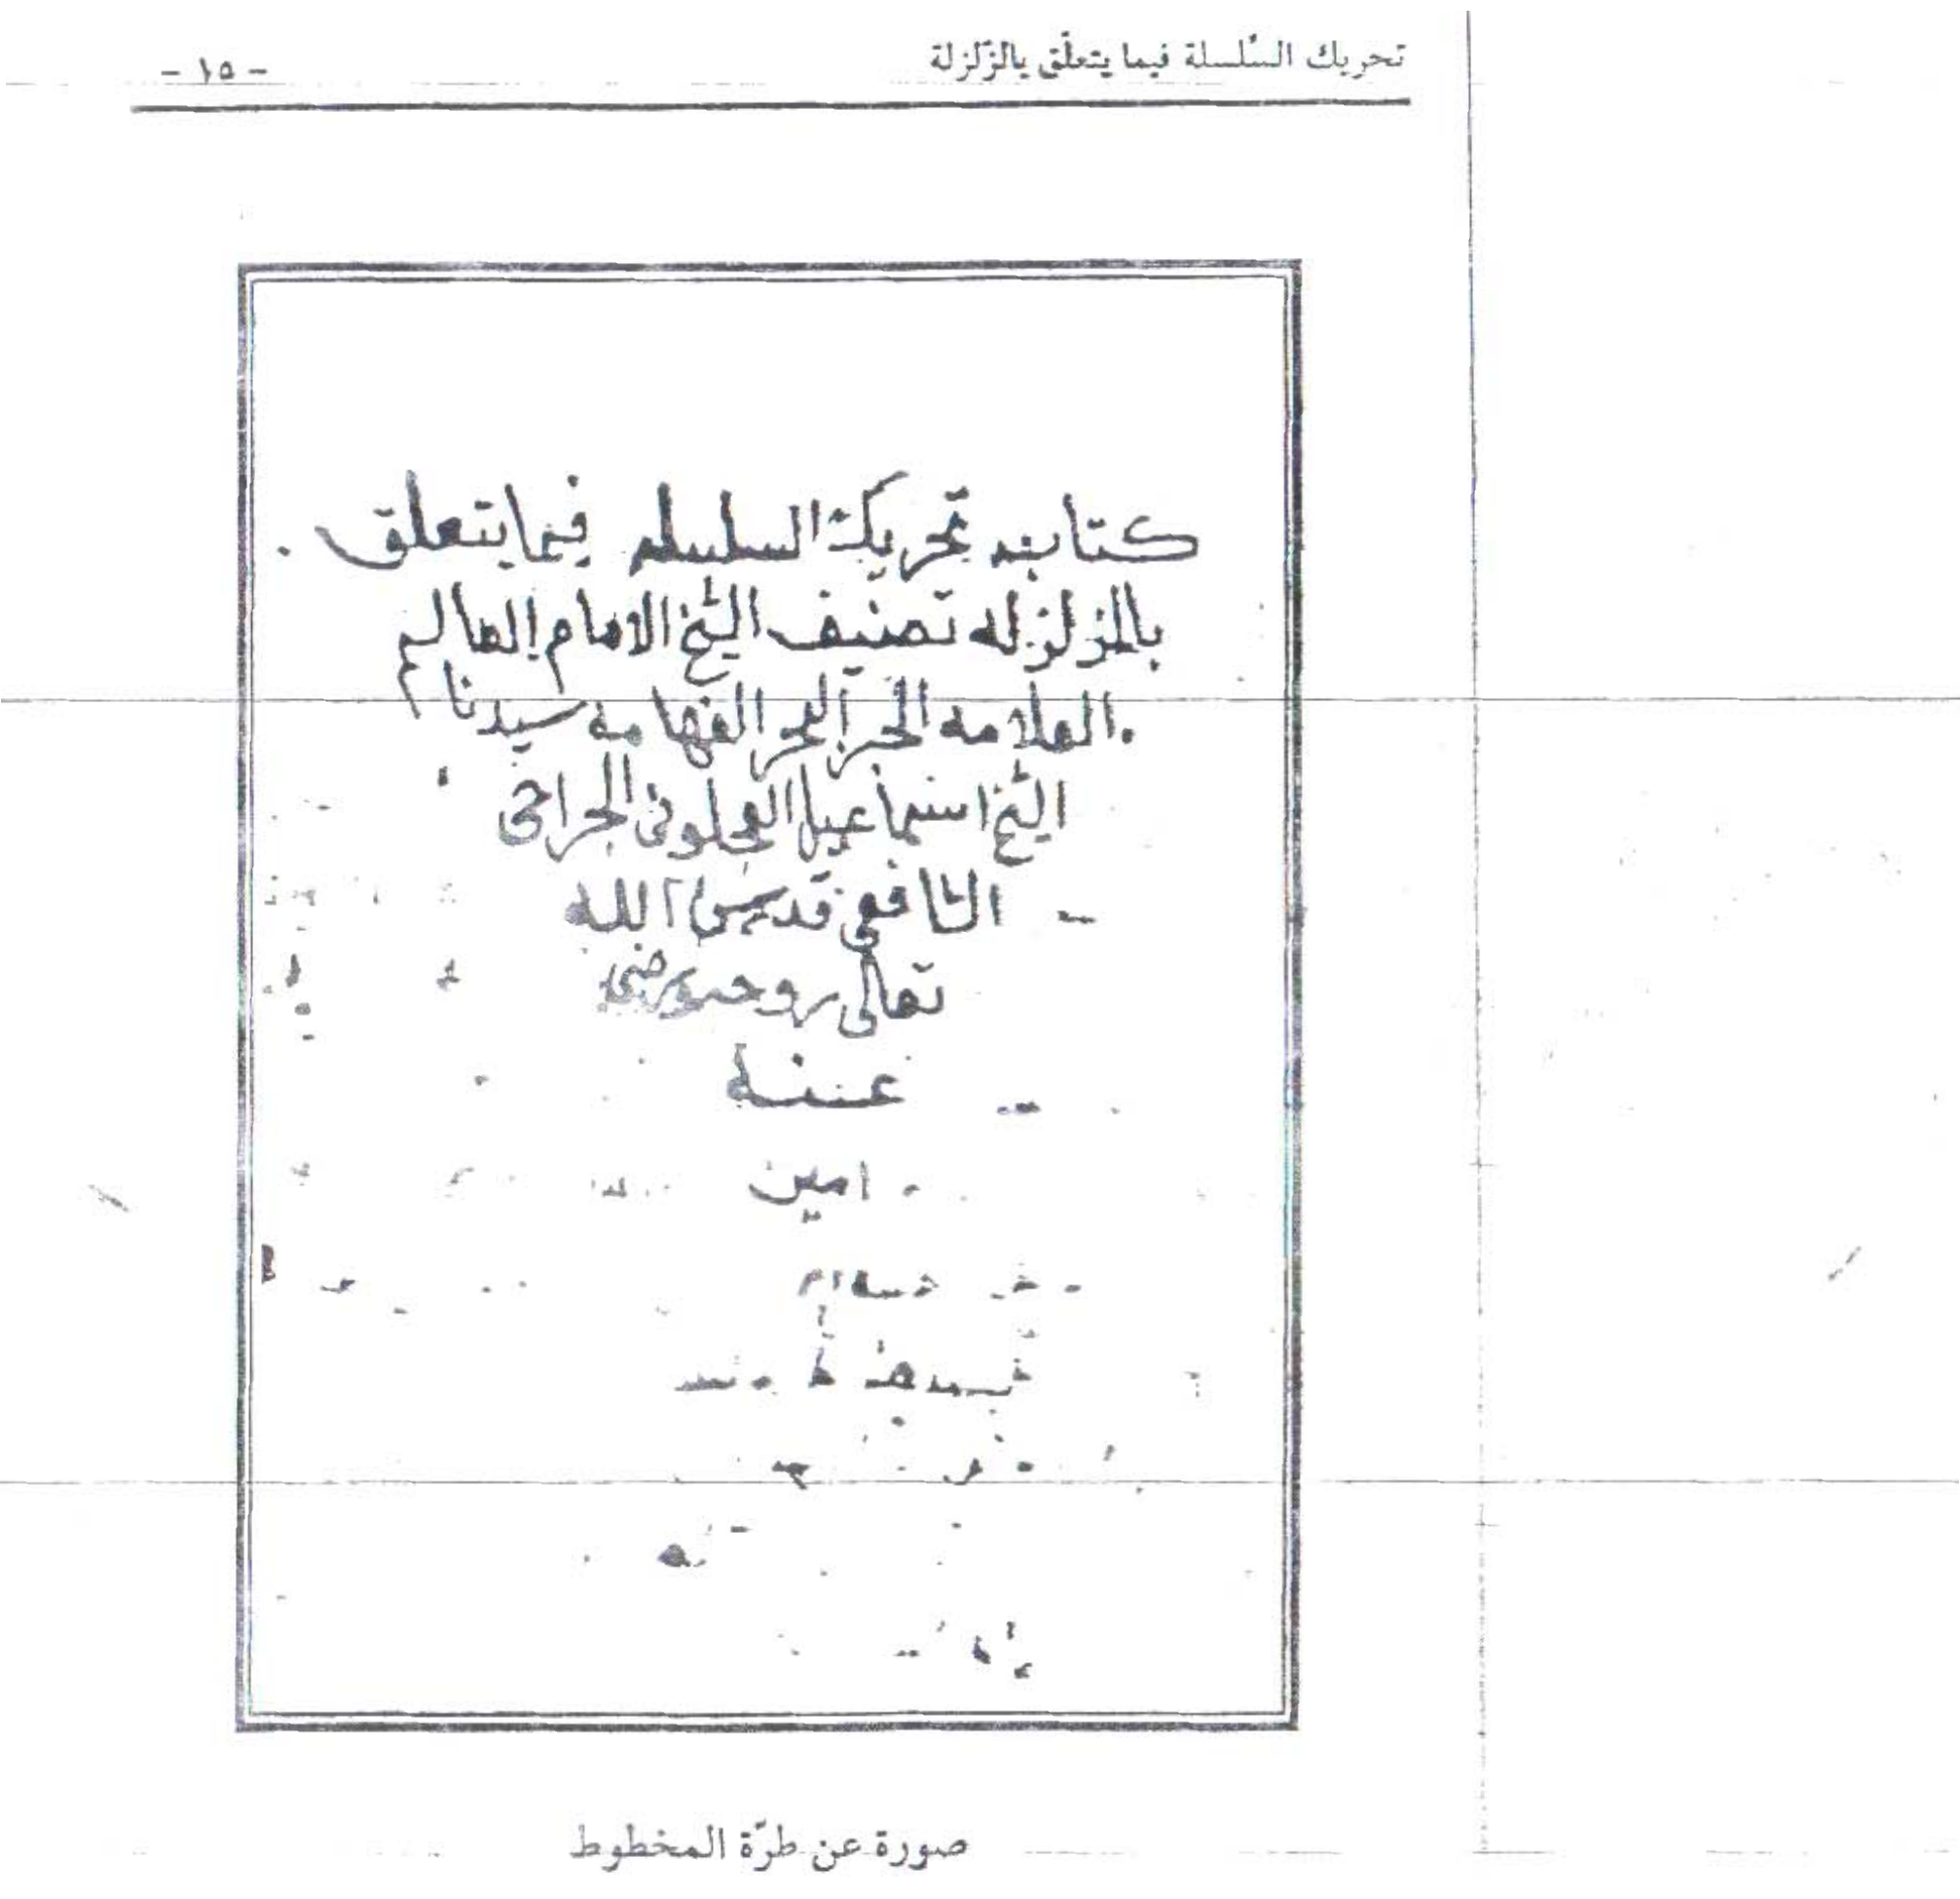 تحريك السّلسلة فيما يتعلّق بالزّلزلة
- ١٥ -
كتاب تحريك السلسله فيما يتعلق
بالزلزله تصنيف الشيخ الامام العالم
العلامه الحبر البحر الفهامه سيدنا
الشيخ اسماعيل العجلوني الجراحي
الشافعي قدس الله
تعالى روحه ورضي
عنه
امين
صورة عن طرّة المخطوط